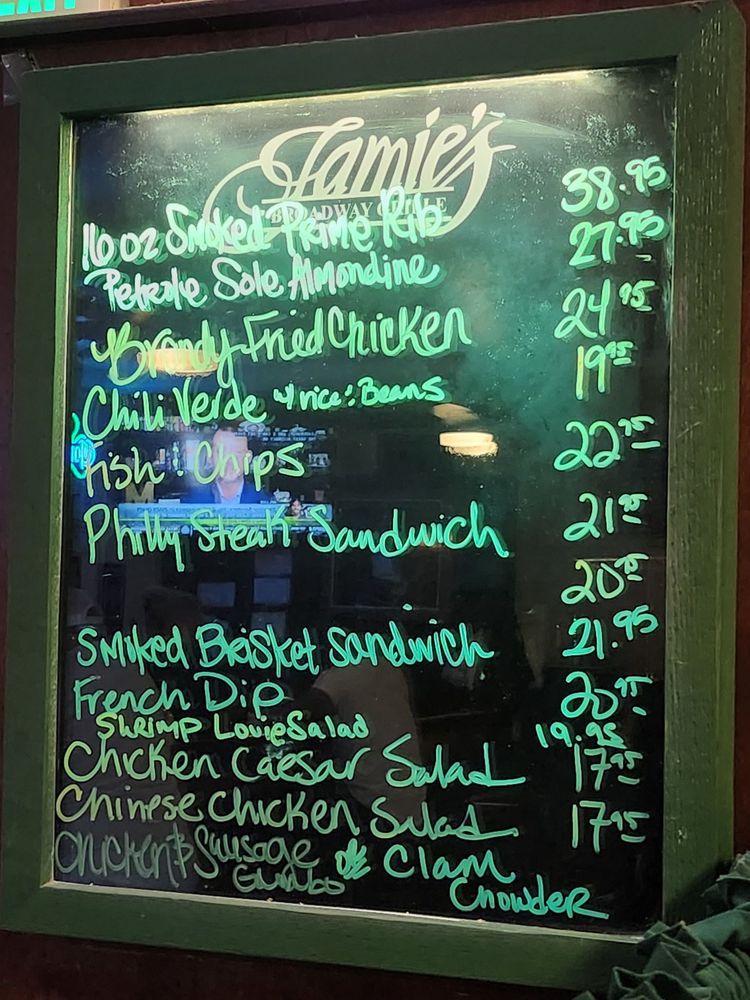 EXIT
Jamie's
BROADWAY GRILLE
16 oz Smoked Prime Rib 38.95
Petrale Sole Almondine 27.95
Brandy Fried Chicken 24 95
Chili Verde w/ rice & Beans 19 95
Fish & Chips 22 95
Philly Steak Sandwich 21 95
20 95
Smoked Brisket Sandwich 21.95
French Dip 20 95
Shrimp Louie Salad 19.95
Chicken Caesar Salad 17 95
Chinese Chicken Salad 17 95
Chicken & Sausage Gumbo or Clam Chowder